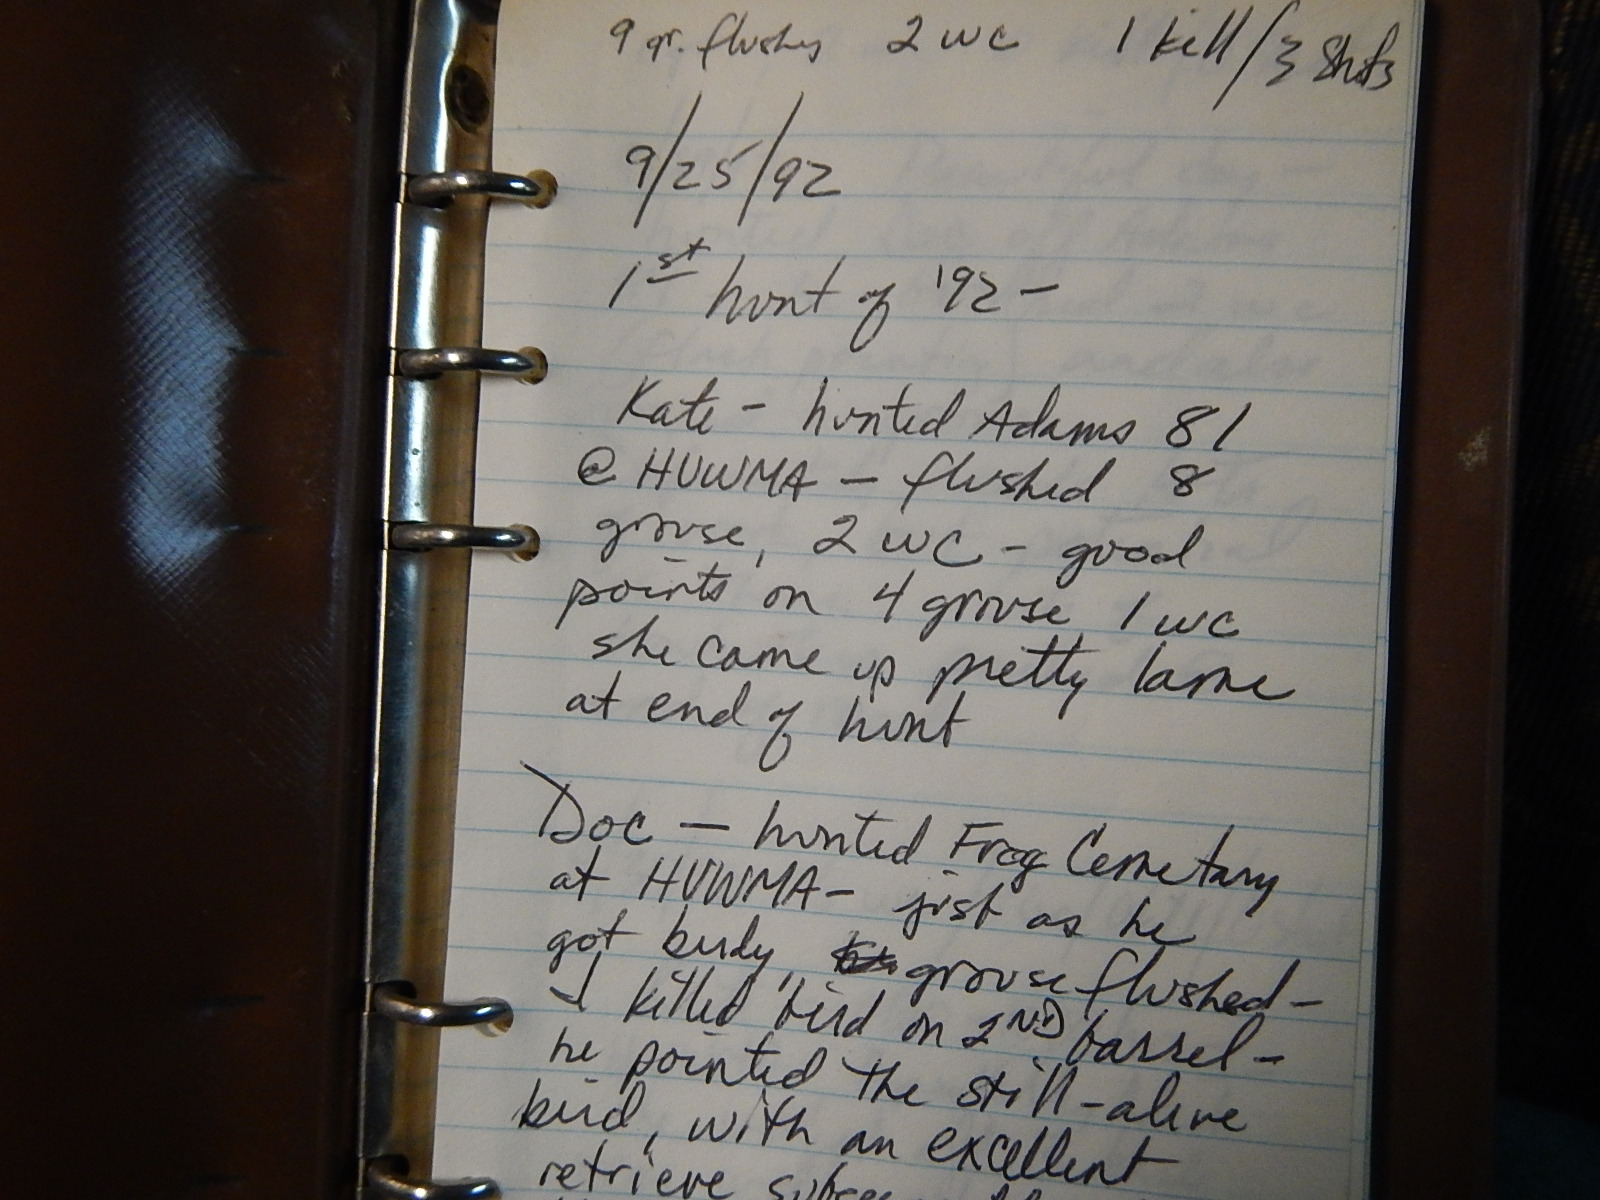 9 gr. flushes 2 wc 1 kill/3 shots
9/25/92
1st hunt of '92 -
Kate - hunted Adams 81
@ HVWMA - flushed 8
grouse, 2 WC - good
points on 4 grouse 1 wc
she came up pretty lame
at end of hunt
Doc - hunted Frog Cemetary
at HVWMA - just as he
got birdy, grouse flushed -
I killed bird on 2ND barrel -
he pointed the still-alive
bird, with an excellent
retrieve